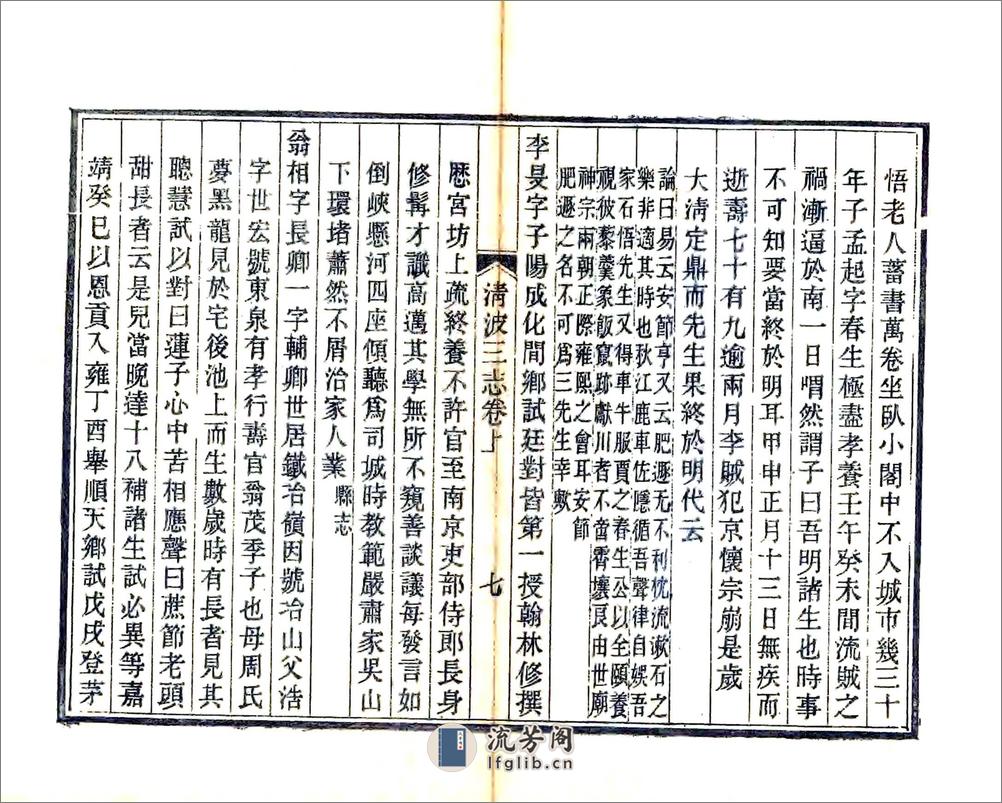 悟老人蓄書萬卷坐臥小閣中不入城市幾三十
年子孟起字春生極盡孝養壬午癸未間流賊之
禍漸逼於南一日喟然謂子曰吾明諸生也時事
不可知要當終於明耳甲申正月十三日無疾而
逝壽七十有九逾兩月李賊犯京懷宗崩是歲
大清定鼎而先生果終於明代云
論曰易云安節亨又云肥遯无不利枕流漱石之
樂非適其時也秋江鹿車佐隱循吾聲律自娛吾
家石悟先生又得車牛服賈之春生公以全頤養
視彼藜羹䉛飯竄跡獻川者不啻霄壤良由世廟
神宗兩朝正際雍熙之會耳安節
肥遯之名不可為三先生幸歟
李旻字子陽成化間鄉試廷對皆第一授翰林修撰
清波三志卷上
七
歷宮坊上疏終養不許官至南京吏部侍郎長身
修髯才識高邁其學無所不窺善談議每發言如
倒峽懸河四座傾聽為司城時教範嚴肅家吳山
下環堵蕭然不屑治家人業 縣志
翁相字長卿一字輔卿世居鐵冶嶺因號冶山父浩
字世宏號東泉有孝行壽官翁茂季子也母周氏
夢黑龍見於宅後池上而生數歲時有長者見其
聰慧試以對曰蓮子心中苦相應聲曰蔗節老頭
甜長者云是兒當晚達十八補諸生試必異等嘉
靖癸巳以恩貢入雍丁酉舉順天鄉試戊戌登茅
流芳阁
lfglib.cn